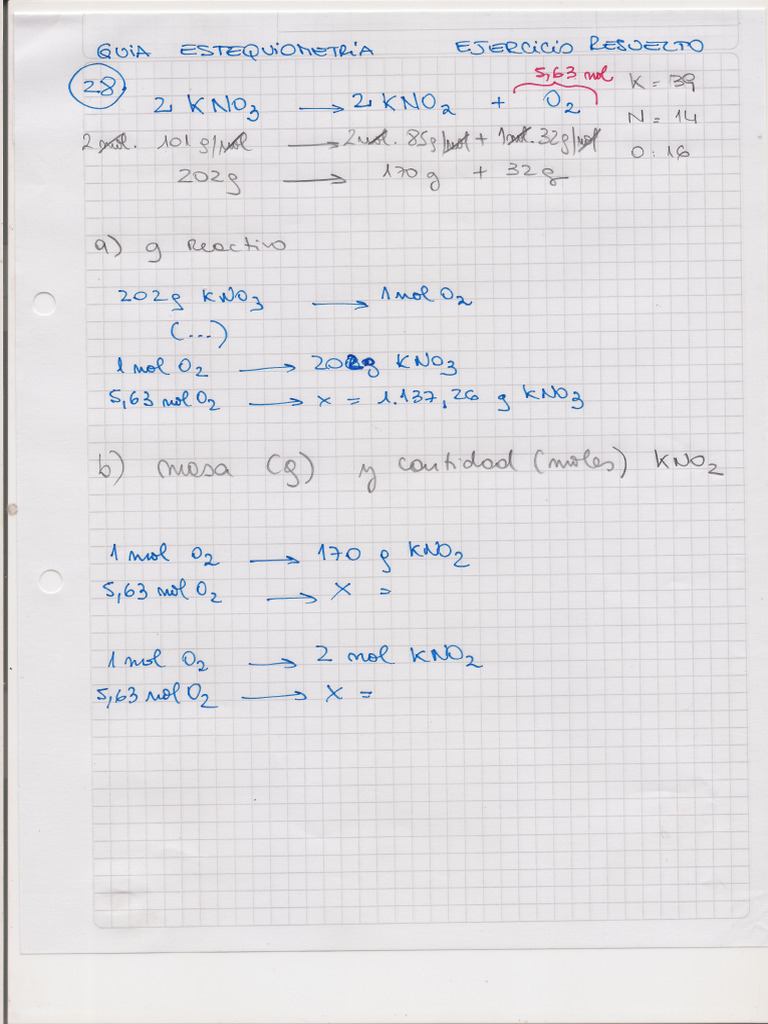 GUIA ESTEQUIOMETRIA EJERCICIO RESUELTO
28
5,63 mol
K = 39
2 KNO3 → 2 KNO2 + O2
N = 14
2 mol. 101 g/mol → 2 mol. 85g/mol + 1 mol. 32g/mol
O: 16
202g → 170 g + 32 g
a) g reactivo
202g KNO3 → 1 mol O2
(...)
1 mol O2 → 202g KNO3
5,63 mol O2 → x = 1.137,26 g KNO3
b) masa (g) y cantidad (moles) KNO2
1 mol O2 → 170 g KNO2
5,63 mol O2 → X =
1 mol O2 → 2 mol KNO2
5,63 mol O2 → X =